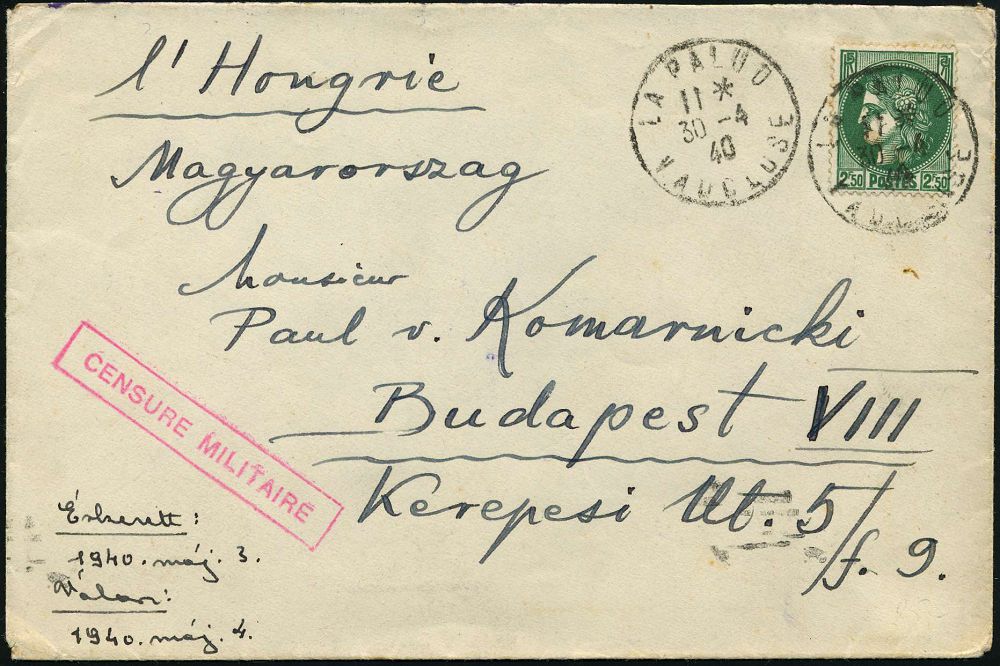 l' Hongrie
Magyarország
Monsieur
Paul v. Komarnicki
Budapest VIII
Kerepesi Ut. 5/
f. 9.
LA PALUD
11 *
30 -4
40
VAUCLUSE
2.50 POSTES 2.50
CENSURE MILITAIRE
Érkezett:
1940. máj. 3.
Válasz:
1940. máj. 4.